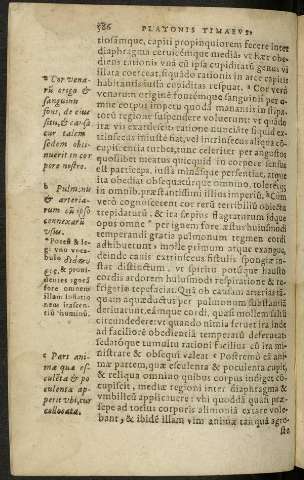 586 PLATONIS TIMAEVS,
tiosámque, capiti propinquiorem fecere inter
diaphragma ceruicémque mediã: vt hæc obe-
diens rationi vnà cũ ipsa cupiditatũ genus vi
illata coerceat, siquãdo rationi in arce capitis
habitantis iussa cupiditas respuat. Cor verò
venarum originẽ fontémque sanguinis per o-
mne corpus impetu quodã manantis in stipa-
torũ regione suspendere voluerunt: vt quãdo
ira vis exardescit ratione nunciãte siquid ex-
trinsecus iniuste fiat, vel intrinsecus aliqua cõ-
cupiscentia turbet, tunc celeriter per angustos
quoslibet meatus quicquid in corpore sensus
est particeps, iussa minásque persentiat, atque
ita obediat obsequatúrque omnino, toleréns
in omnib. præstantissimi illius imperiũ. Cùm
verò cognoscerent cor rerũ terribiliũ obiectu
trepidaturũ, & ira sæpius flagraturum idque
opus omne per ignem fore: æstus huiusmodi
temperandi gratia pulmonum tegmen cordi
adhibuerunt: molle primùm atque exangue,
deinde cauis extrinsecus fistulis spongiæ in-
star distinctum, vt spiritu potúque hausto
cordis ardorem huiusmodi respiratione & re-
frigerio tepefaciat. Quã ob causam arterias ta-
quàm aquæductus per pulmonum substantiã
deriuarunt, eámque cordi, quasi mollem saltũ
circundedere: vt quando nimia feruet ira inde
ad facilioré obedientiã temperatũ deferuen-
sedatóque tumultu rationi facilius cũ ira mi-
nistrare & obsequi valeat. Postremò eã ani-
mæ partem, quæ esculenta & poculenta cupit,
& reliqua omnino quibus corpus indiget cõ-
cupiscit, mediæ regioni inter diaphragma &
vmbilicũ applicuere: vbi quoddã quasi præ-
sepe ad totius corporis alimoniã extare vole-
bant, & ibidẽ illam vim animæ tanquã agre-
ste
Cor vena-
rũ origo &
sanguinis
fons, de eius
situ, & causa
cur talem
sedem obti-
nuerit in cor
pore nostro.
Pulmonũ
& arteria-
rum cũ ipso
connexarũ
vsus.
Potest & le-
gi
& proui-
dentes
fore omnem
illam
nem irascen-
tiũ hominũ.
Pars ani-
mæ quæ es-
culẽta & po
culenta ap-
petit vbi, cur
collocata.